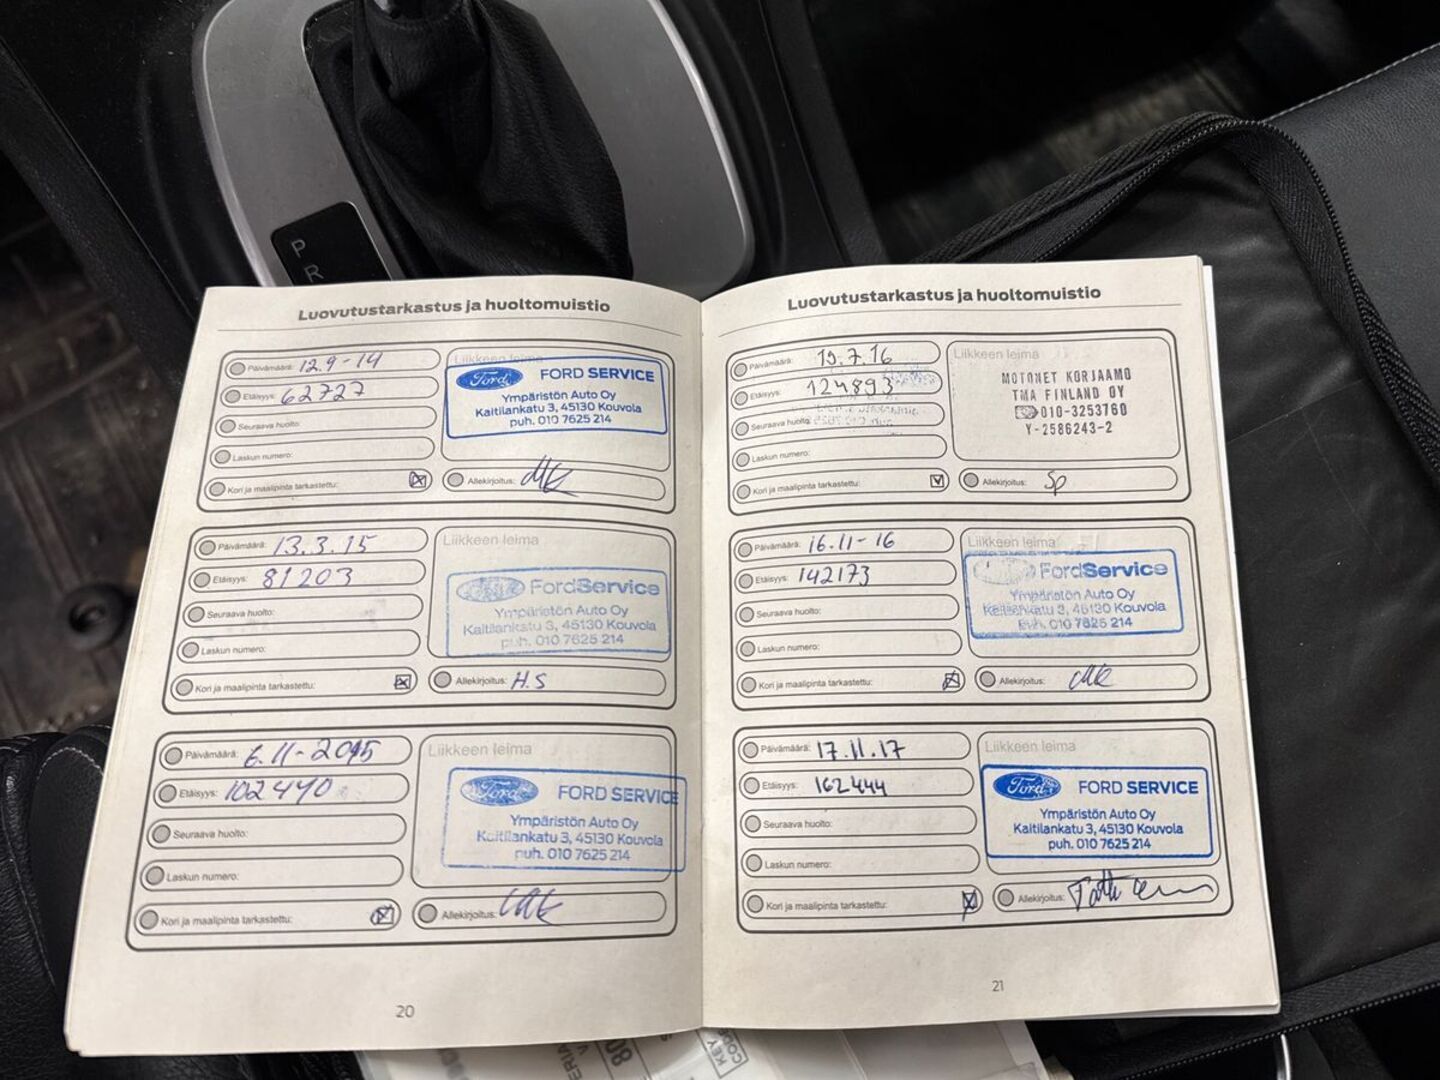 P
R
Luovutustarkastus ja huoltomuistio
Päivämäärä: 12.9-14
Etäisyys: 62727
Seuraava huolto:
Laskun numero:
Kori ja maalipinta tarkastettu:
Liikkeen leima
Ford FORD SERVICE
Ympäristön Auto Oy
Kaitilankatu 3, 45130 Kouvola
puh. 010 7625 214
Allekirjoitus:
Päivämäärä: 13.3.15
Etäisyys: 81203
Seuraava huolto:
Laskun numero:
Kori ja maalipinta tarkastettu:
Liikkeen leima
FordService
Ympäristön Auto Oy
Kaitilankatu 3, 45130 Kouvola
puh. 010 7625 214
Allekirjoitus: H.S
Päivämäärä: 6.11-2015
Etäisyys: 102440
Seuraava huolto:
Laskun numero:
Kori ja maalipinta tarkastettu:
Liikkeen leima
Ford FORD SERVICE
Ympäristön Auto Oy
Kaitilankatu 3, 45130 Kouvola
puh. 010 7625 214
Allekirjoitus:
20
Luovutustarkastus ja huoltomuistio
Päivämäärä: 19.7.16
Etäisyys: 124893
Seuraava huolto:
Laskun numero:
Kori ja maalipinta tarkastettu:
Liikkeen leima
MOTONET KORJAAMO
TMA FINLAND OY
010-3253760
Y-2586243-2
Allekirjoitus: Sp
Päivämäärä: 16.11-16
Etäisyys: 142173
Seuraava huolto:
Laskun numero:
Kori ja maalipinta tarkastettu:
Liikkeen leima
FordService
Ympäristön Auto Oy
Kaitilankatu 3, 45130 Kouvola
puh. 010 7625 214
Allekirjoitus:
Päivämäärä: 17.11.17
Etäisyys: 162444
Seuraava huolto:
Laskun numero:
Kori ja maalipinta tarkastettu:
Liikkeen leima
Ford FORD SERVICE
Ympäristön Auto Oy
Kaitilankatu 3, 45130 Kouvola
puh. 010 7625 214
Allekirjoitus:
21
KEY